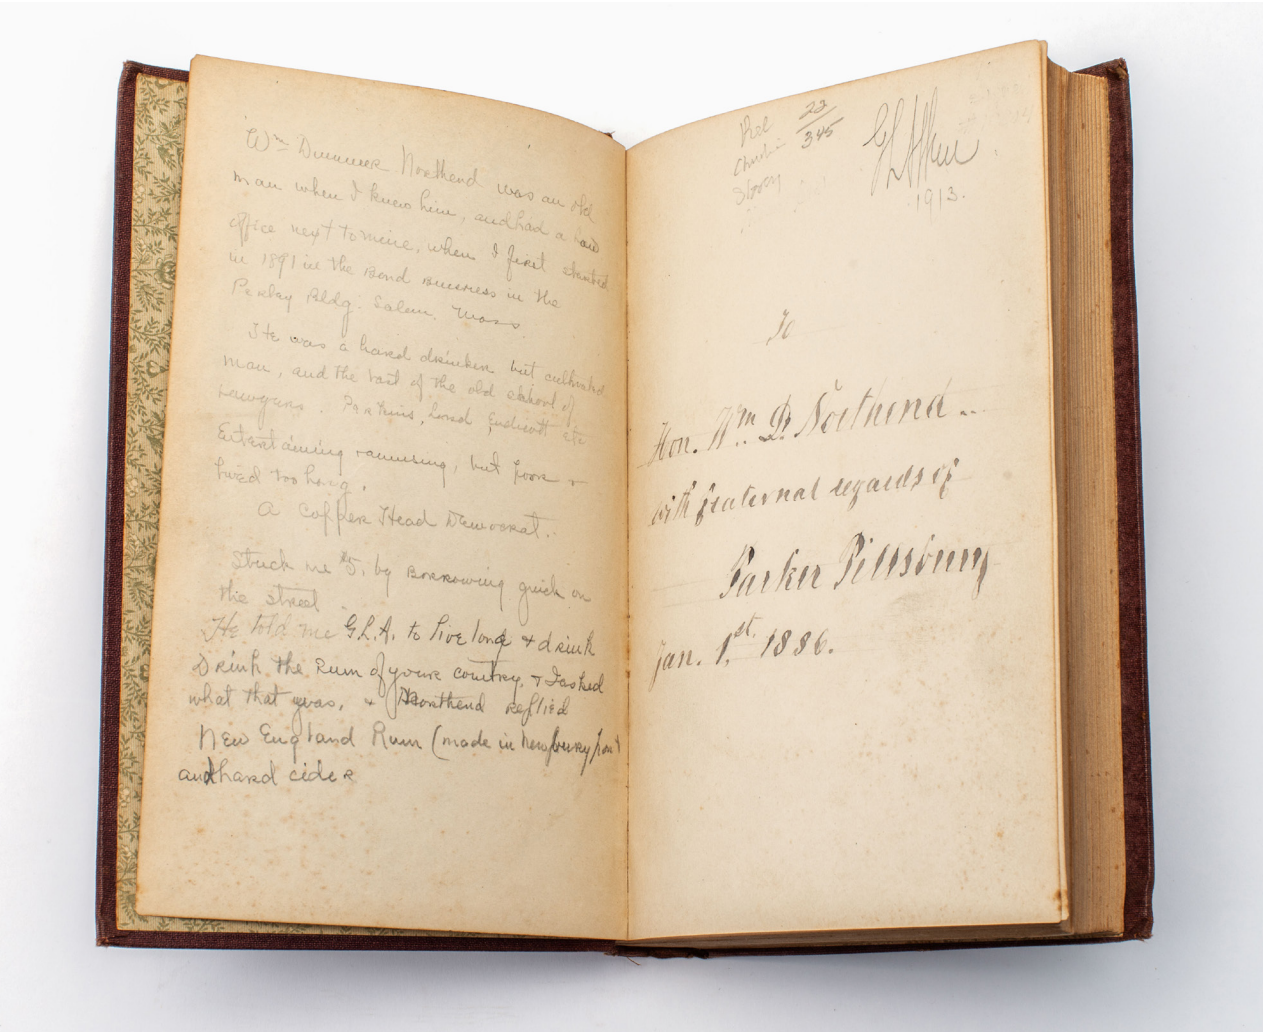 Wm Dummer Northend was an old
man when I knew him, and had a law
office next to mine, when I first started
in 1891 in the Bond Business in the
Perley Bldg. Salem. Mass
He was a hard drinker but cultivated
man, and the last of the old school of
Lawyers. Perkins, Lord, Endicott etc
Entertaining &amusing, but poor &
lived too long.
A Copper Head Democrat.
Stuck me $5, by Borrowing quick on
the street
He told me G.L.A. to live long & drink
Drink the Rum of your country, & I asked
what that was, & Northend replied
New England Rum (made in Newburyport
and hard cider
23
345
Story
1913.
To
Hon. Wm. D. Northend
with fraternal regards of
Parker Pillsbury
Jan. 1st. 1886.